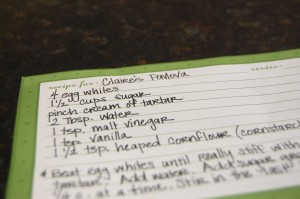 recipe for: Claire's Pavlova
4 egg whites
1 1/2 cups sugar
pinch cream of tartar
2 Tbsp. water
1 tsp. malt vinegar
1 tsp. vanilla
1 1/2 tsp. heaped cornflour (cornstarch
* Beat egg whites until really stiff with
tartar. Add water. Add sugar
at a time. Stir in the last